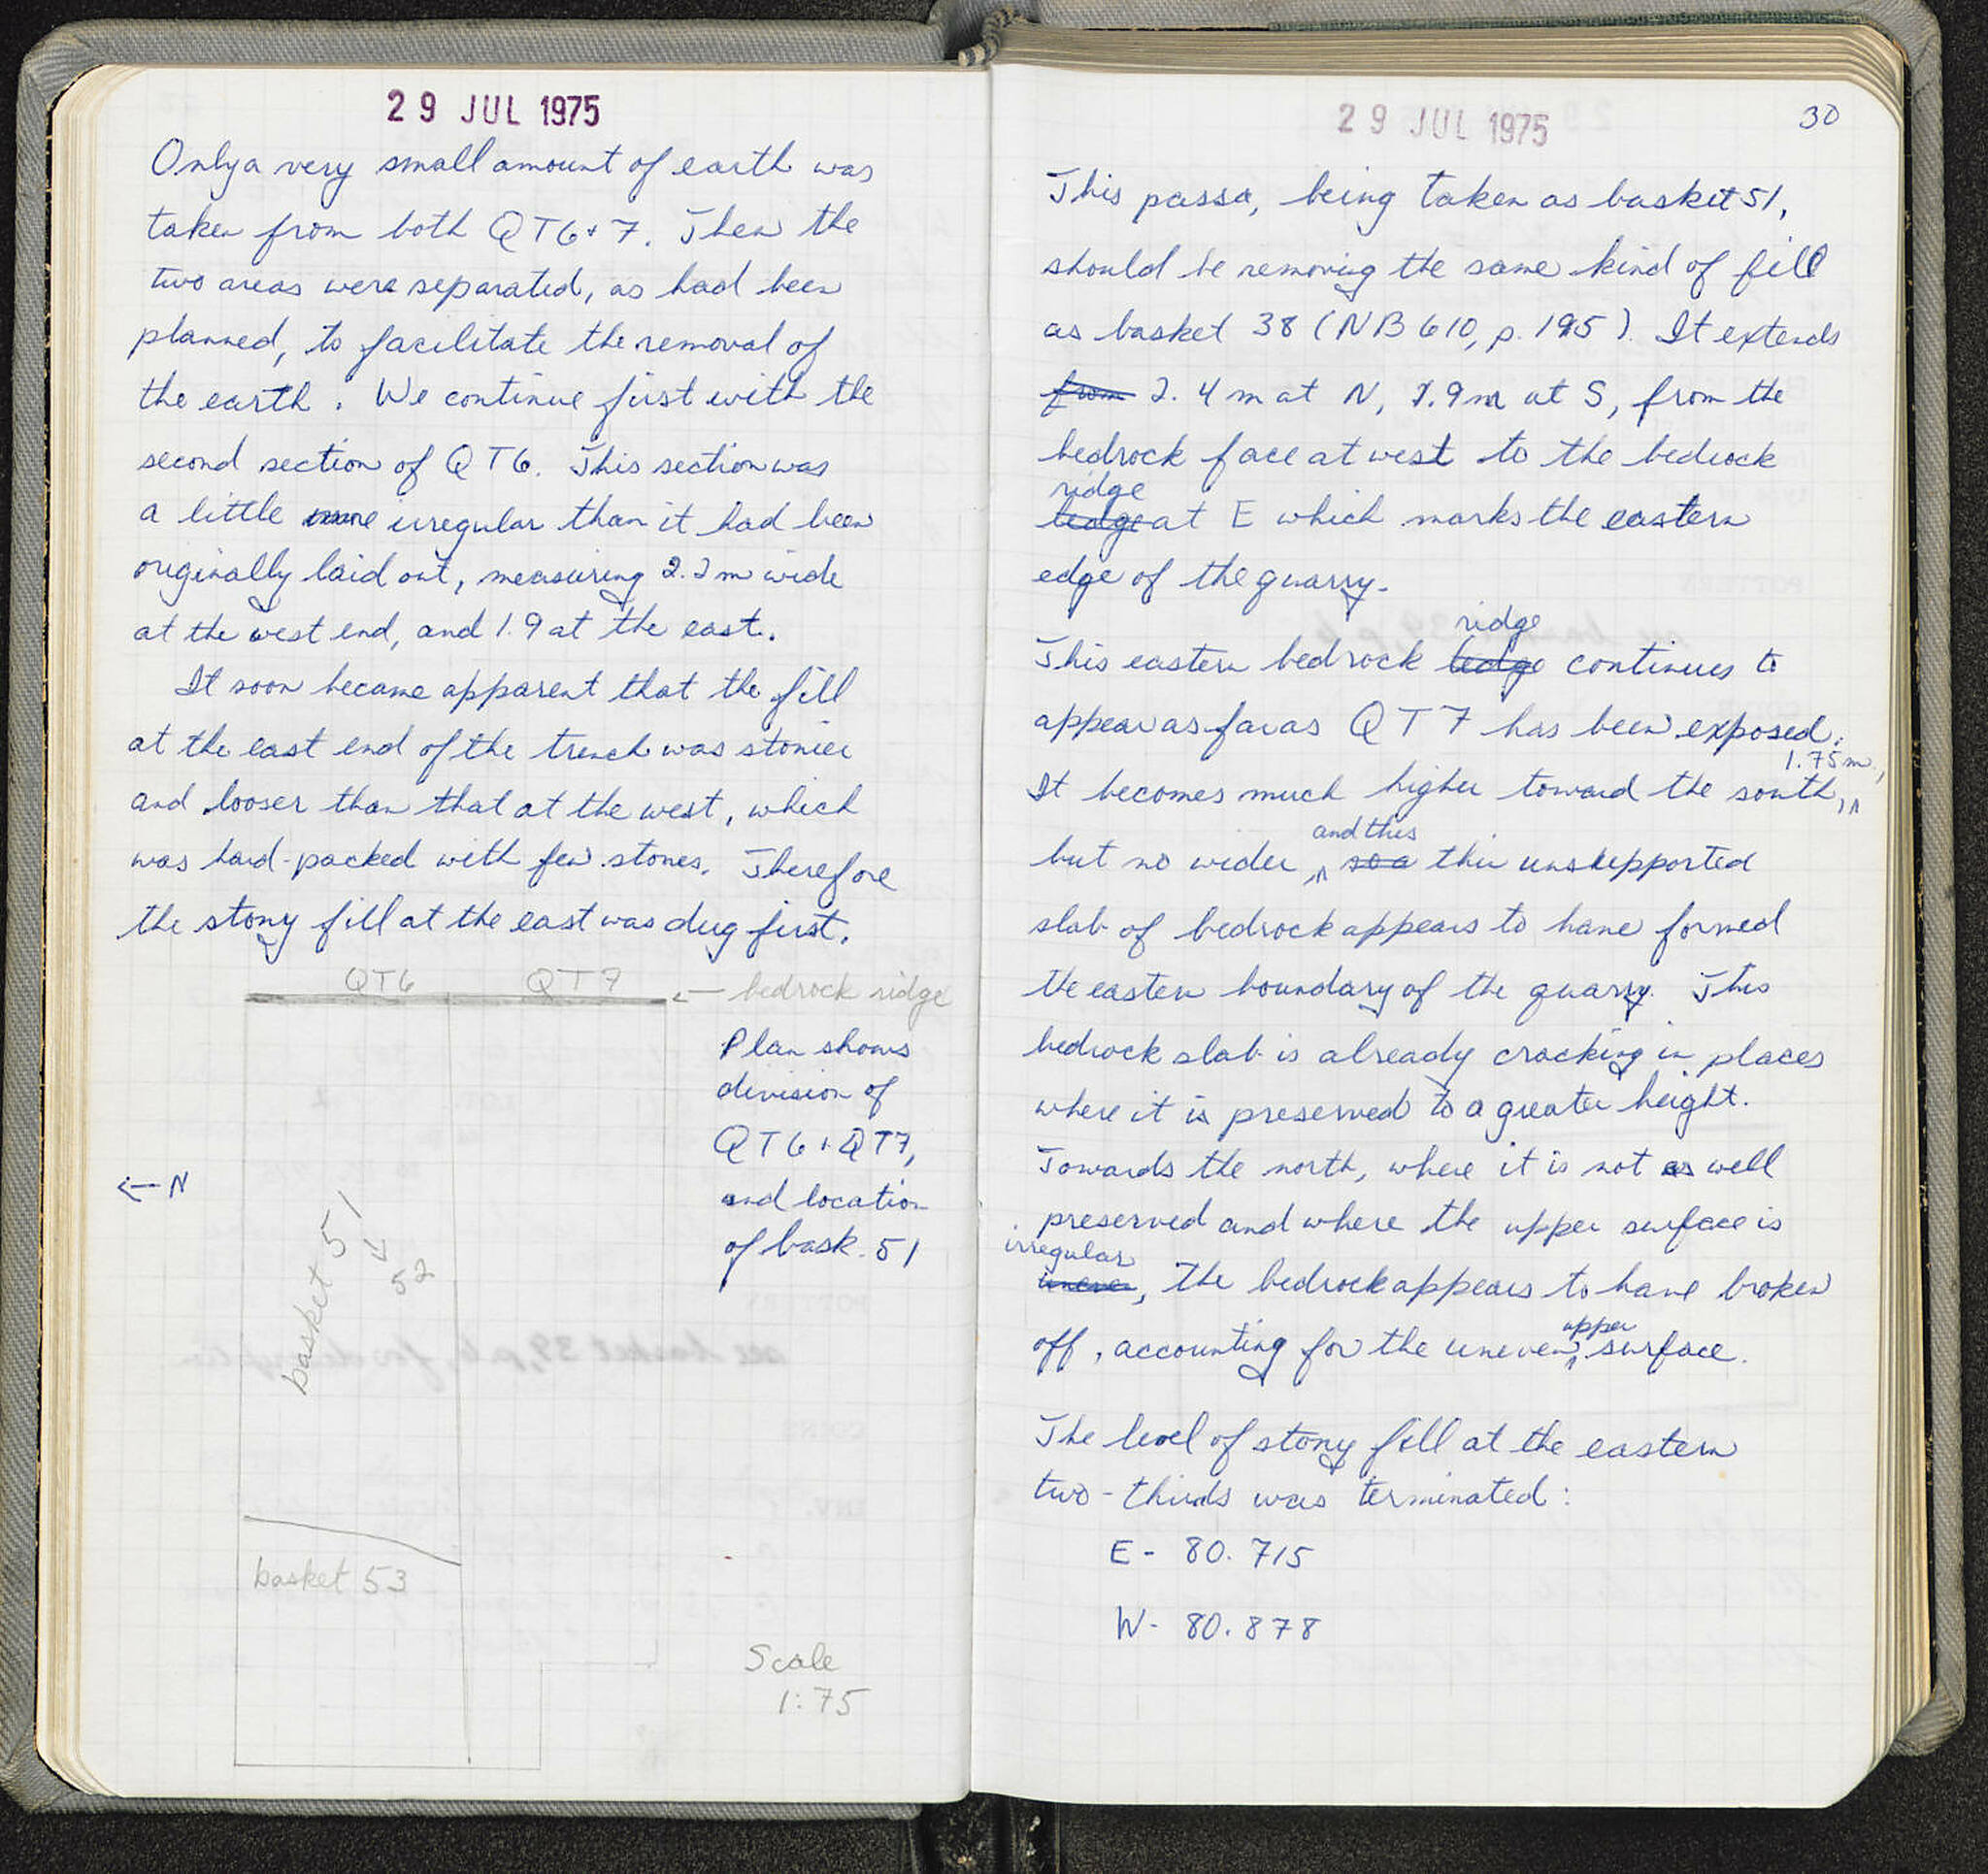 29 JUL 1975
Only a very small amount of earth was
taken from both QT6+7. Then the
two areas were separated, as had been
planned, to facilitate the removal of
the earth. We continue first with the
second section of QT6. This section was
a little more irregular than it had been
originally laid out, measuring 2.2m wide
at the west end, and 1.9 at the east.
It soon became apparent that the fill
at the east end of the trench was stonier
and looser than that at the west, which
was hard-packed with few stones. Therefore
the stony fill at the east was dug first.
QT6 QT7
← bedrock ridge
Plan shows
division of
QT6+QT7,
and location
of bask. 51
← N
basket 51
→
52
basket 53
Scale
1:75
29 JUL 1975
30
This passa, being taken as basket 51,
should be removing the same kind of fill
as basket 38 (NB 610, p. 195). It extends
from 2.4m at N, 1.9m at S, from the
bedrock face at west to the bedrock
ridge
ledge at E which marks the eastern
edge of the quarry.
ridge
This eastern bedrock ledge continues to
appear as far as QT7 has been exposed.
1.75m,
It becomes much higher toward the south,
and this
but no wider, so a thin unsupported
slab of bedrock appears to have formed
the eastern boundary of the quarry. This
bedrock slab is already cracking in places
where it is preserved to a greater height.
Towards the north, where it is not as well
preserved and where the upper surface is
irregular
uneven, the bedrock appears to have broken
upper
off, accounting for the uneven surface.
The level of stony fill at the eastern
two-thirds was terminated:
E - 80.715
W - 80.878